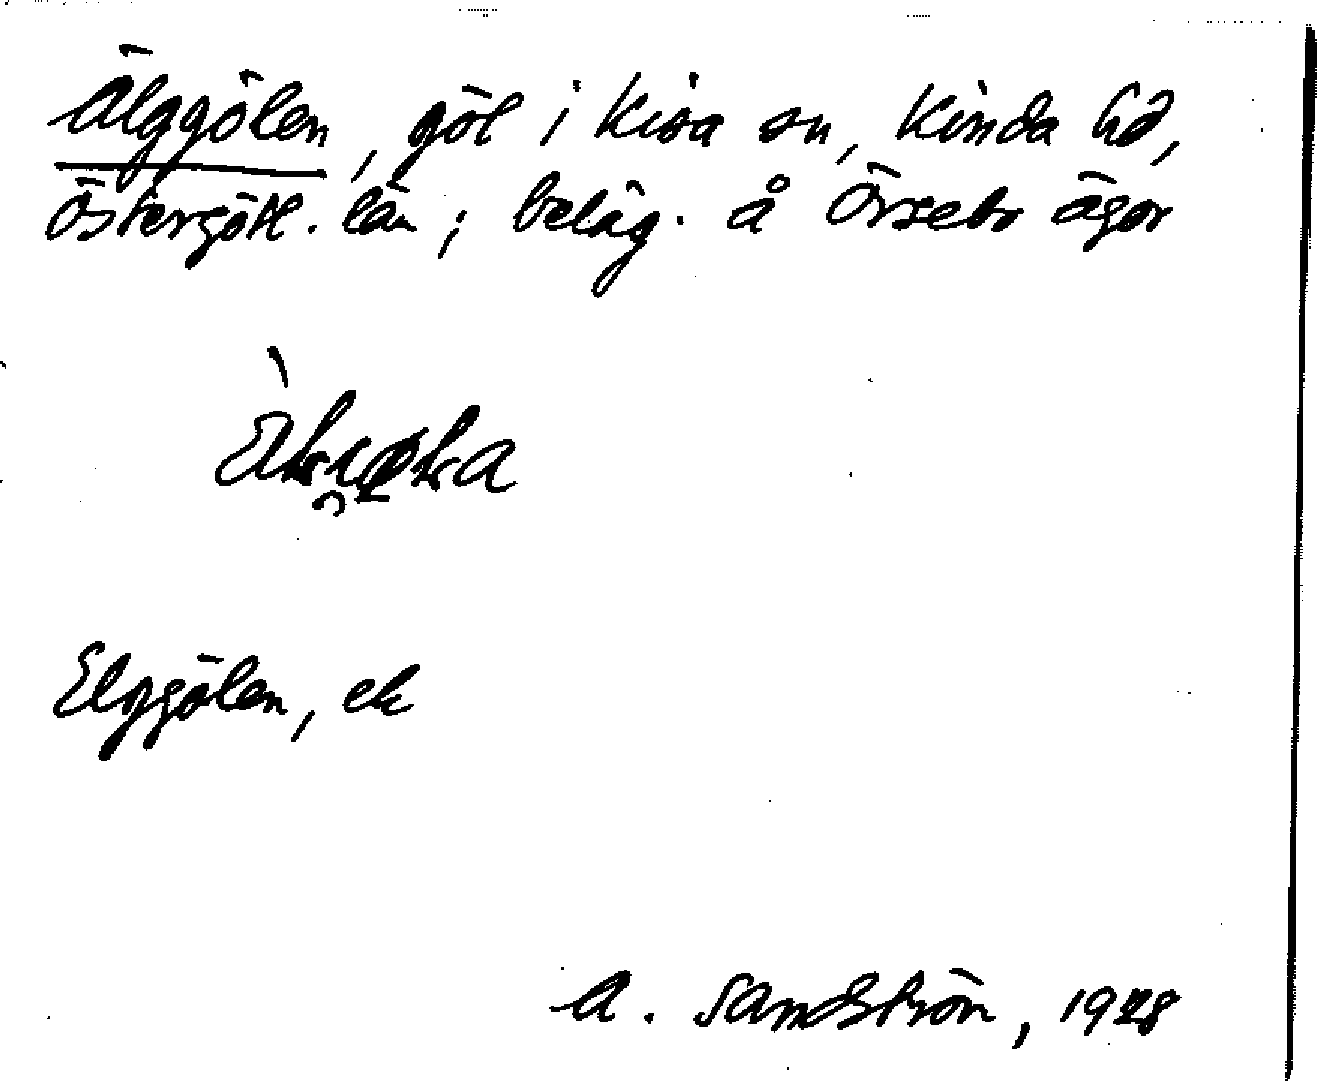 Älggölen, göl i Kisa sn, Kinda hd,
Östergötl. län; beläg. å Örsebo ägor
Elggölen, ek
A. Sandström, 1928